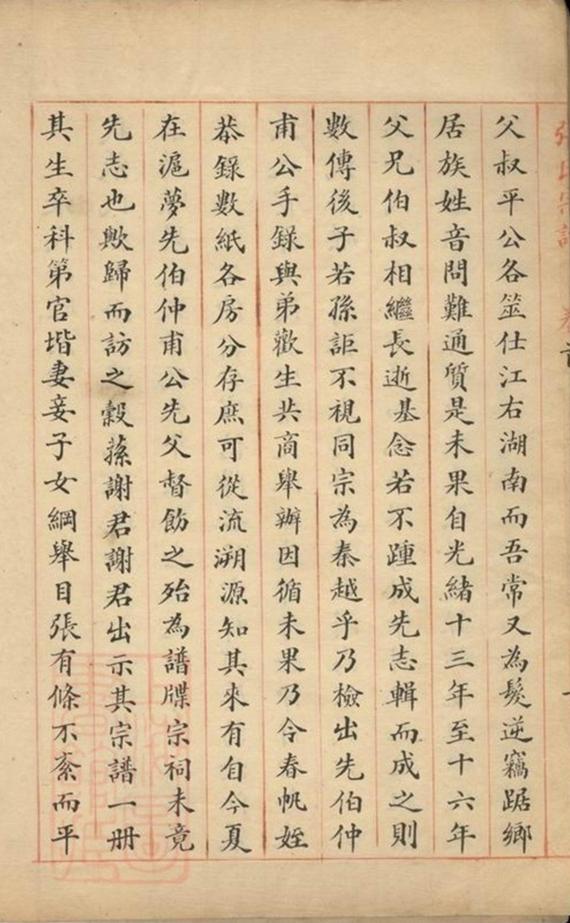 父叔平公各筮仕江右湖南而吾常又為髮逆竊踞鄉
居族姓音問難通質是未果自光緒十三年至十六年
父兄伯叔相繼長逝基念若不踵成先志輯而成之則
數傳後子若孫詎不視同宗為秦越乎乃檢出先伯仲
甫公手錄與弟歡生共商舉辦因循未果乃令春帆姪
恭錄數紙各房分存庶可從流溯源知其來有自今夏
在滬夢先伯仲甫公先父督飭之殆為譜牒宗祠未竟
先志也歟歸而訪之穀蓀謝君謝君出示其宗譜一册
其生卒科第官堦妻妾子女綱舉目張有條不紊而平